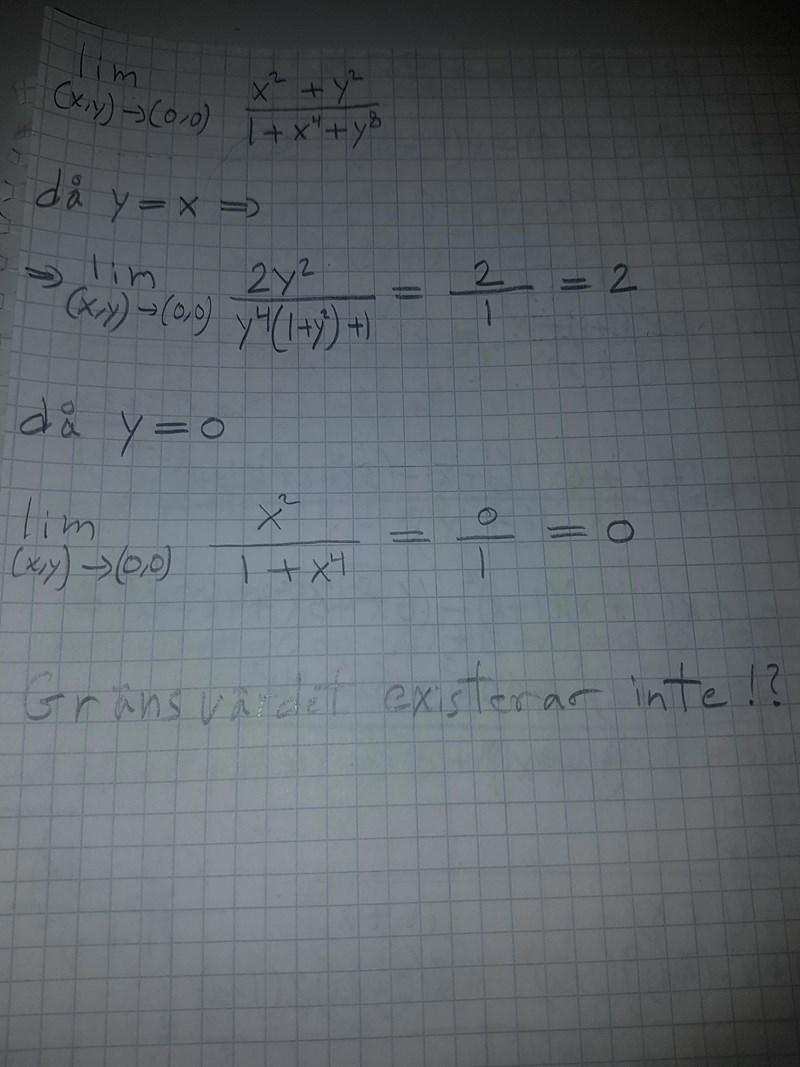 lim (x,y)→(0,0) x² + y² / 1 + x⁴ + y⁸
då y = x ⇒
⇒ lim (x,y)→(0,0) 2y² / y⁴(1+y²)+1 = 2 / 1 = 2
då y = 0
lim (x,y)→(0,0) x² / 1 + x⁴ = 0 / 1 = 0
Gränsvärdet existerar inte!?